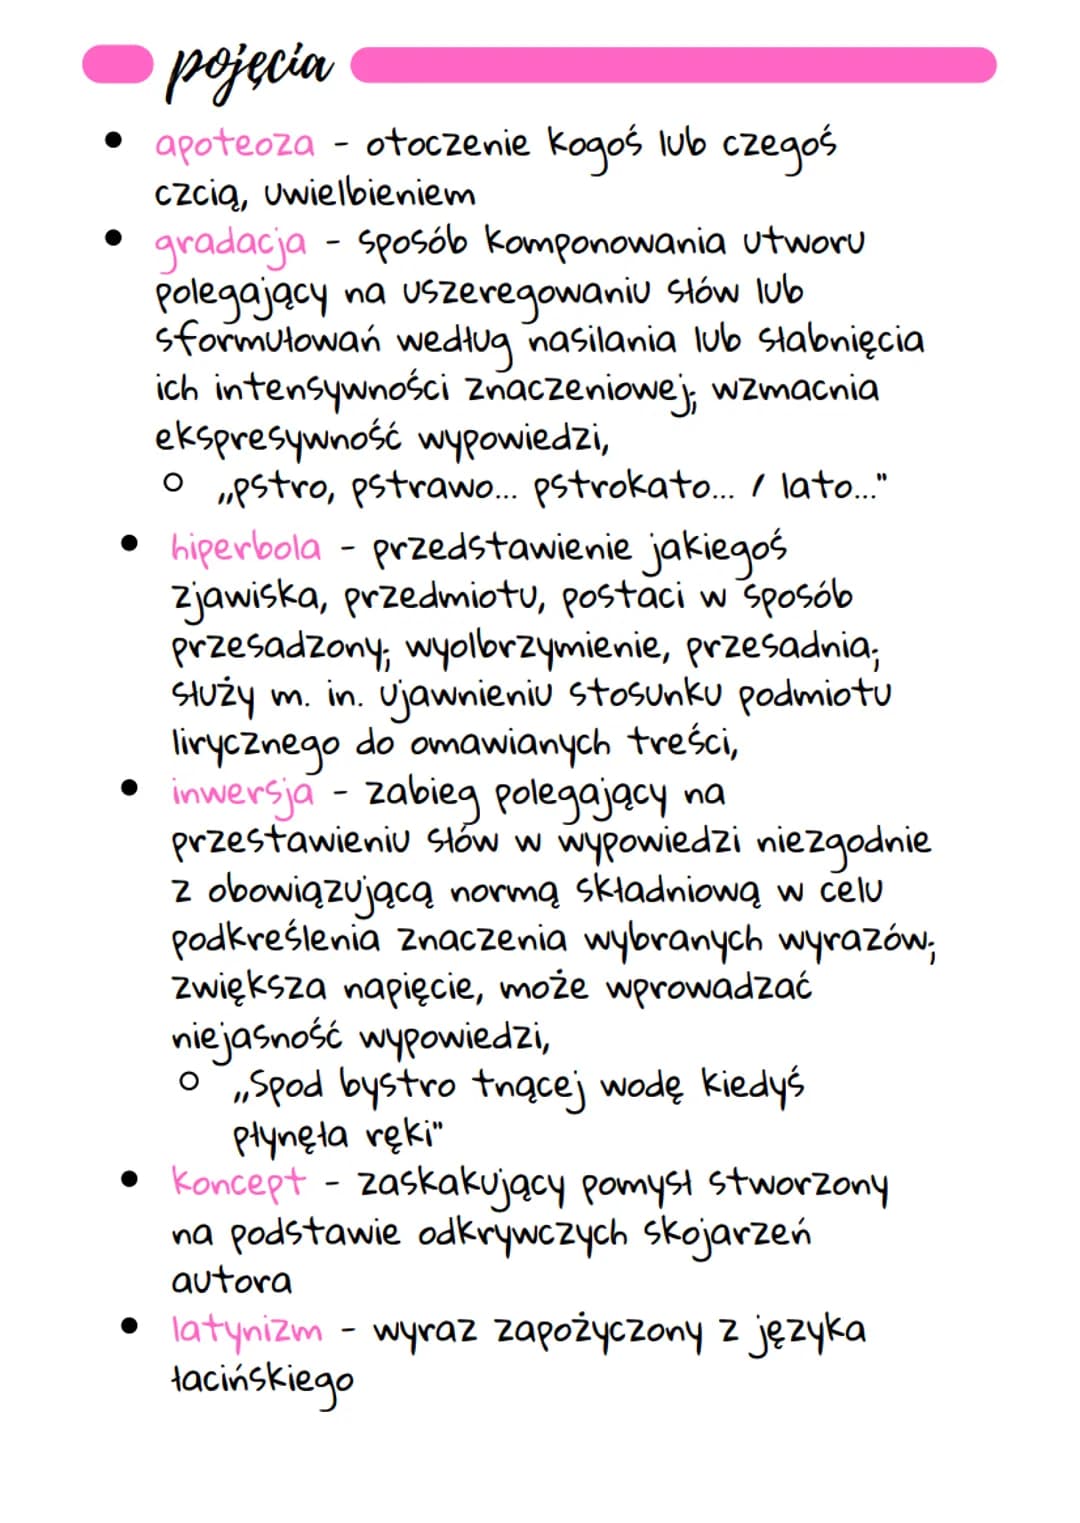 pojęcia
• apoteoza - otoczenie kogoś lub czegoś
czcią, uwielbieniem
• gradacja - sposób komponowania utworu
polegający na uszeregowaniu słów lub
sformułowań według nasilania lub słabnięcia
ich intensywności znaczeniowej; wzmacnia
ekspresywność wypowiedzi,
○ „pstro, pstrawo... pstrokato... / lato..."
• hiperbola - przedstawienie jakiegoś
zjawiska, przedmiotu, postaci w sposób
przesadzony; wyolbrzymienie, przesadnia;
służy m. in. ujawnieniu stosunku podmiotu
lirycznego do omawianych treści,
• inwersja - zabieg polegający na
przestawieniu słów w wypowiedzi niezgodnie
z obowiązującą normą składniową w celu
podkreślenia znaczenia wybranych wyrazów;
zwiększa napięcie, może wprowadzać
niejasność wypowiedzi,
○ „Spod bystro tnącej wodę kiedyś
płynęła ręki"
• koncept - zaskakujący pomysł stworzony
na podstawie odkrywczych skojarzeń
autora
• latynizm - wyraz zapożyczony z języka
łacińskiego